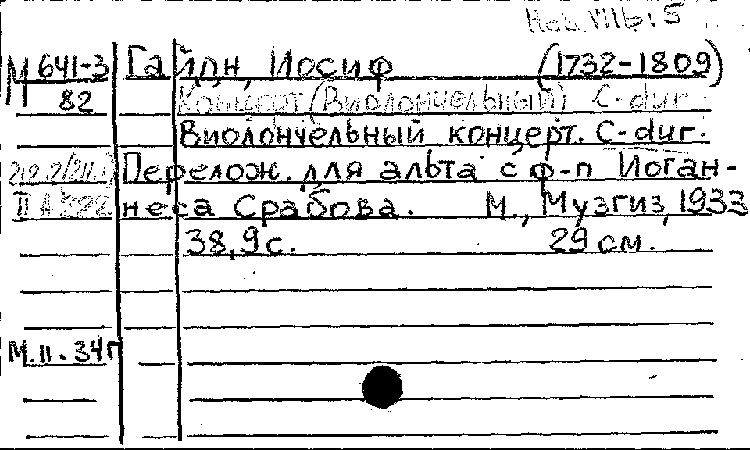 Hob. VIIb:5
М 641-3 Гайдн, Иосиф (1732-1809)
82 Концерт (Виолончельный) C-dur
Виолончельный концерт. C-dur.
Перелож. для альта с ф-п Иоган-
II А 322 неса Срабова. М., Музгиз, 1933
38, 9 с. 29 см.
М.п.-34г